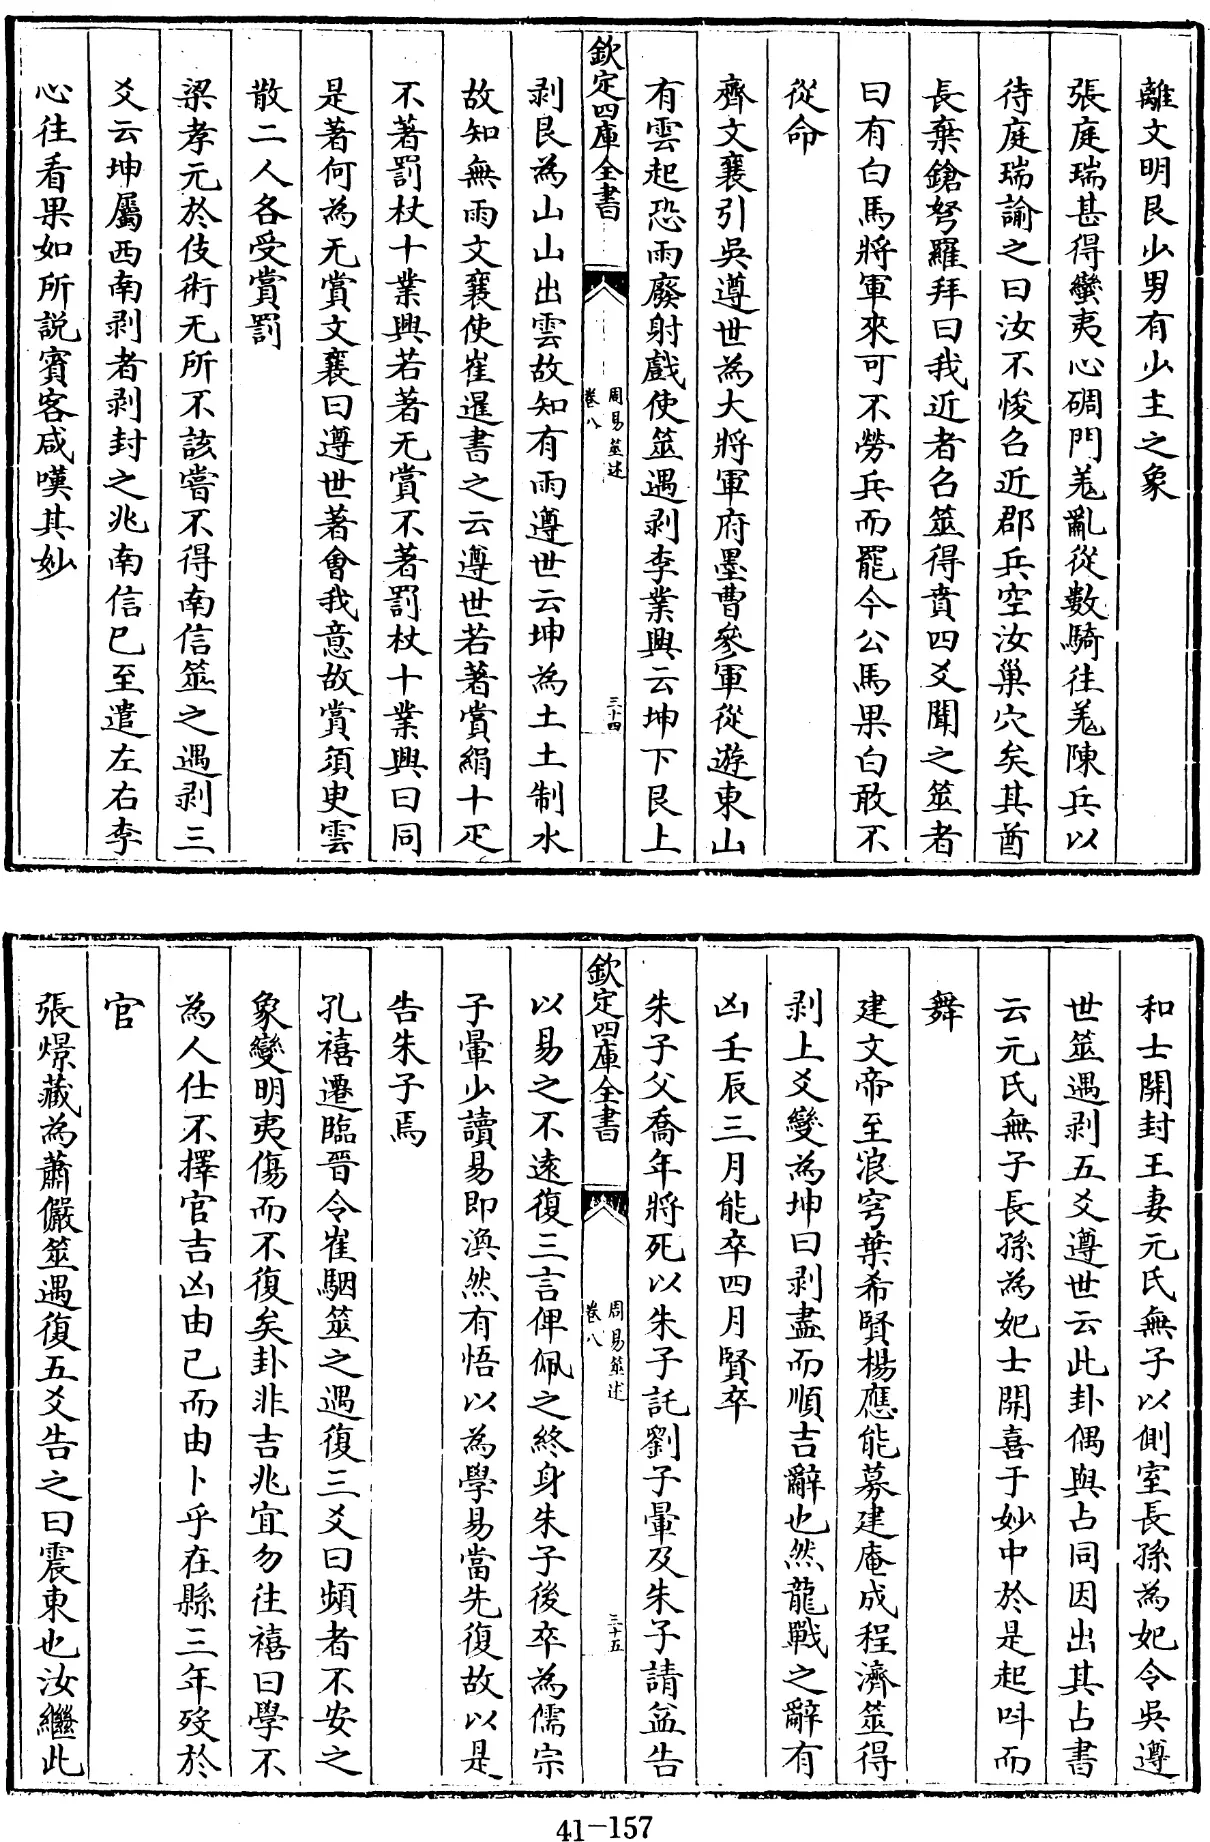 離文明艮少男有少主之象
張庭瑞甚得蠻夷心碉門羌亂從數騎往羌陳兵以
待庭瑞諭之曰汝不悛召近郡兵空汝巢穴矣其酋
長棄鎗弩羅拜曰我近者召筮得賁四爻聞之筮者
曰有白馬將軍來可不勞兵而罷今公馬果白敢不
從命
齊文襄引吳遵世為大將軍府墨曹參軍從遊東山
有雲起恐雨廢射戲使筮遇剥李業興云坤下艮上
欽定四庫全書
周易筮述
卷八
三十四
剥艮為山山出雲故知有雨遵世云坤為土土制水
故知無雨文襄使崔暹書之云遵世若著賞絹十疋
不著罰杖十業興若著无賞不著罰杖十業興曰同
是著何為无賞文襄曰遵世著會我意故賞須臾雲
散二人各受賞罰
梁孝元於伎術无所不該嘗不得南信筮之遇剥三
爻云坤屬西南剥者剥封之兆南信已至遣左右李
心往看果如所說賓客咸嘆其妙
和士開封王妻元氏無子以側室長孫為妃令吳遵
世筮遇剥五爻遵世云此卦偶與占同因出其占書
云元氏無子長孫為妃士開喜于妙中於是起呌而
舞
建文帝至浪穹葉希賢楊應能募建庵成程濟筮得
剥上爻變為坤曰剥盡而順吉辭也然龍戰之辭有
凶壬辰三月能卒四月賢卒
朱子父喬年將死以朱子託劉子翬及朱子請益告
欽定四庫全書
周易筮述
卷八
三十五
以易之不遠復三言俾佩之終身朱子後卒為儒宗
子翬少讀易即渙然有悟以為學易當先復故以是
告朱子焉
孔禧遷臨晉令崔駰筮之遇復三爻曰頻者不安之
象變明夷傷而不復矣卦非吉兆宜勿往禧曰學不
為人仕不擇官吉凶由己而由卜乎在縣三年殁於
官
張憬藏為蕭儼筮遇復五爻告之曰震東也汝繼此
41-157